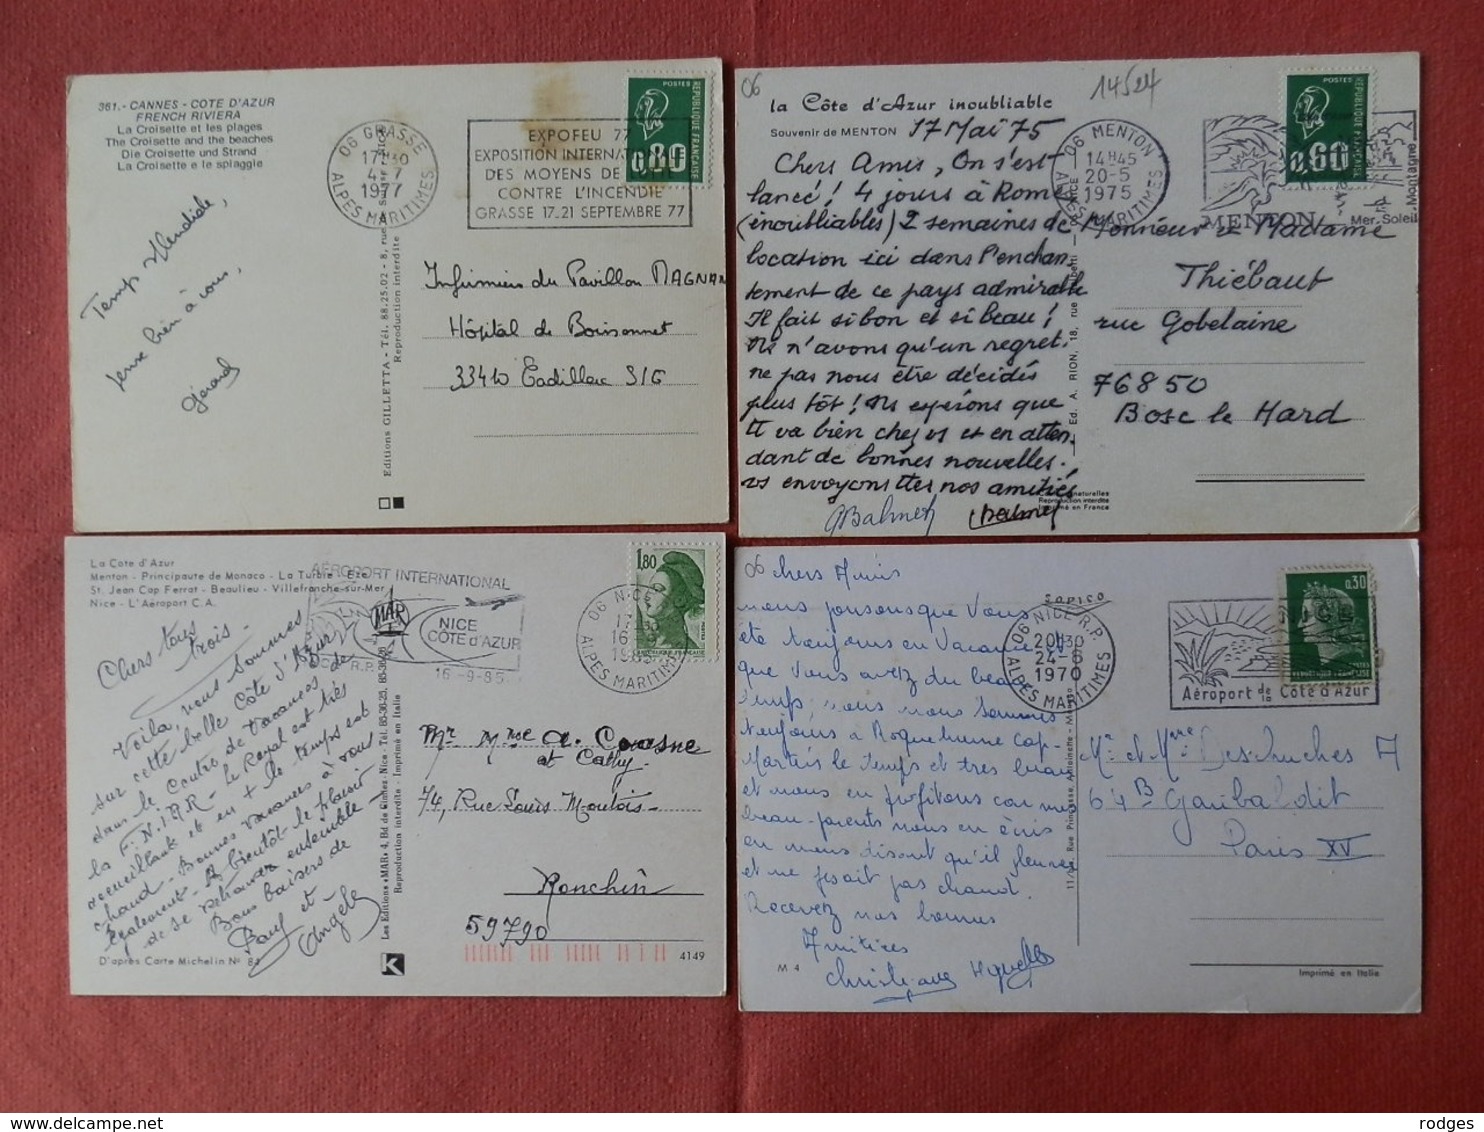 361.- CANNES - COTE D'AZUR
FRENCH RIVIERA
La Croisette et les plages
The Croisette and the beaches
Die Croisette und Strand
La Croisette e le spiaggie
06 GRASSE
17H30
4-7
1977
ALPES MARITIMES
EXPOFEU 77
EXPOSITION INTERNATIONALE
DES MOYENS DE
CONTRE L'INCENDIE
GRASSE 17-21 SEPTEMBRE 77
POSTES
REPUBLIQUE FRANÇAISE
0,80
Temps splendide,
pense bien à vous,
Gérard
Editions GILLETTA - Tél. 88.25.02 - 8, rue
Reproduction interdite
Infirmiers du Pavillon MAGNAN
Hôpital de Boissonnet
33410 Cadillac S/G
06
14524
la Côte d'Azur inoubliable
Souvenir de MENTON
17 Mai 75
06 MENTON
14H45
20-5
1975
ALPES MARITIMES
POSTES
REPUBLIQUE FRANÇAISE
0,60
MENTON
Mer-Soleil-Montagne
Chers Amis, On s'est
lancé! 4 jours à Rome
(inoubliables) 2 semaines de
location ici dans l'enchan
tement de ce pays admirable
Il fait si bon et si beau!
Ns n'avons qu'un regret.
ne pas nous être décidés
plus tôt! Ns espérons que
tt va bien chez vs et en atten
dant de bonnes nouvelles.
vs envoyons ttes nos amitiés
Monsieur et Madame
Thiébaut
rue Gobelaine
76850
Bosc le Hard
Ed. A. RION, 18, rue
naturelles
Reproduction interdite
Imprimé en France
La Cote d'Azur
Menton - Principaute de Monaco - La Turbie - Eze
St. Jean Cap Ferrat - Beaulieu - Villefranche-sur-Mer
Nice - L'Aéroport C.A.
AÉROPORT INTERNATIONAL
NICE
CÔTE d'AZUR
16-9-85
06 NICE R.P.
16-9
1985
ALPES MARITIMES
1,80
Chers tous
trois -
Voila, nous sommes
sur cette belle Côte d'Azur
dans le Centre de Vacances de
la F.N.I.R.R - Le Royal est très
accueillante et en + le temps est
chaud - Bonnes vacances à vous
également - A bientôt le plaisir
de se retrouver ensemble -
Bons baisers de
Paul et
Angèle
D'après Carte Michelin No 84
Les Editions «MAR» 4, Bd de Cimiez - Nice - Tél. 85-36-25
Reproduction interdite - Imprimé en Italie
K
Mr Mme A.
et Cathy
74, Rue Louis
Ronchin
59790
4149
06
Chers Amis
nous pensons que vous
ête toujours en Vacance et
que vous avez du beau
temps, nous nous sommes
toujours à Roquebrune Cap-
Martin le temps et tres beau
et nous en profitons car mes
beau-parents nous en écris
en nous disant qu'il pleuvez
et ne fesait pas chaud.
Recevez nos bonnes
Amitiées
SOPICO
06 NICE R.P.
20H30
24-6
1970
ALPES MARITIMES
Aéroport de la Côte d'Azur
0,30
Mr et Mme Deschuches A
64B Garibaldit
Paris XV
11/bis, Rue Princesse Antoinette
M 4
Imprimé en Italie
rodges
delcampe.net